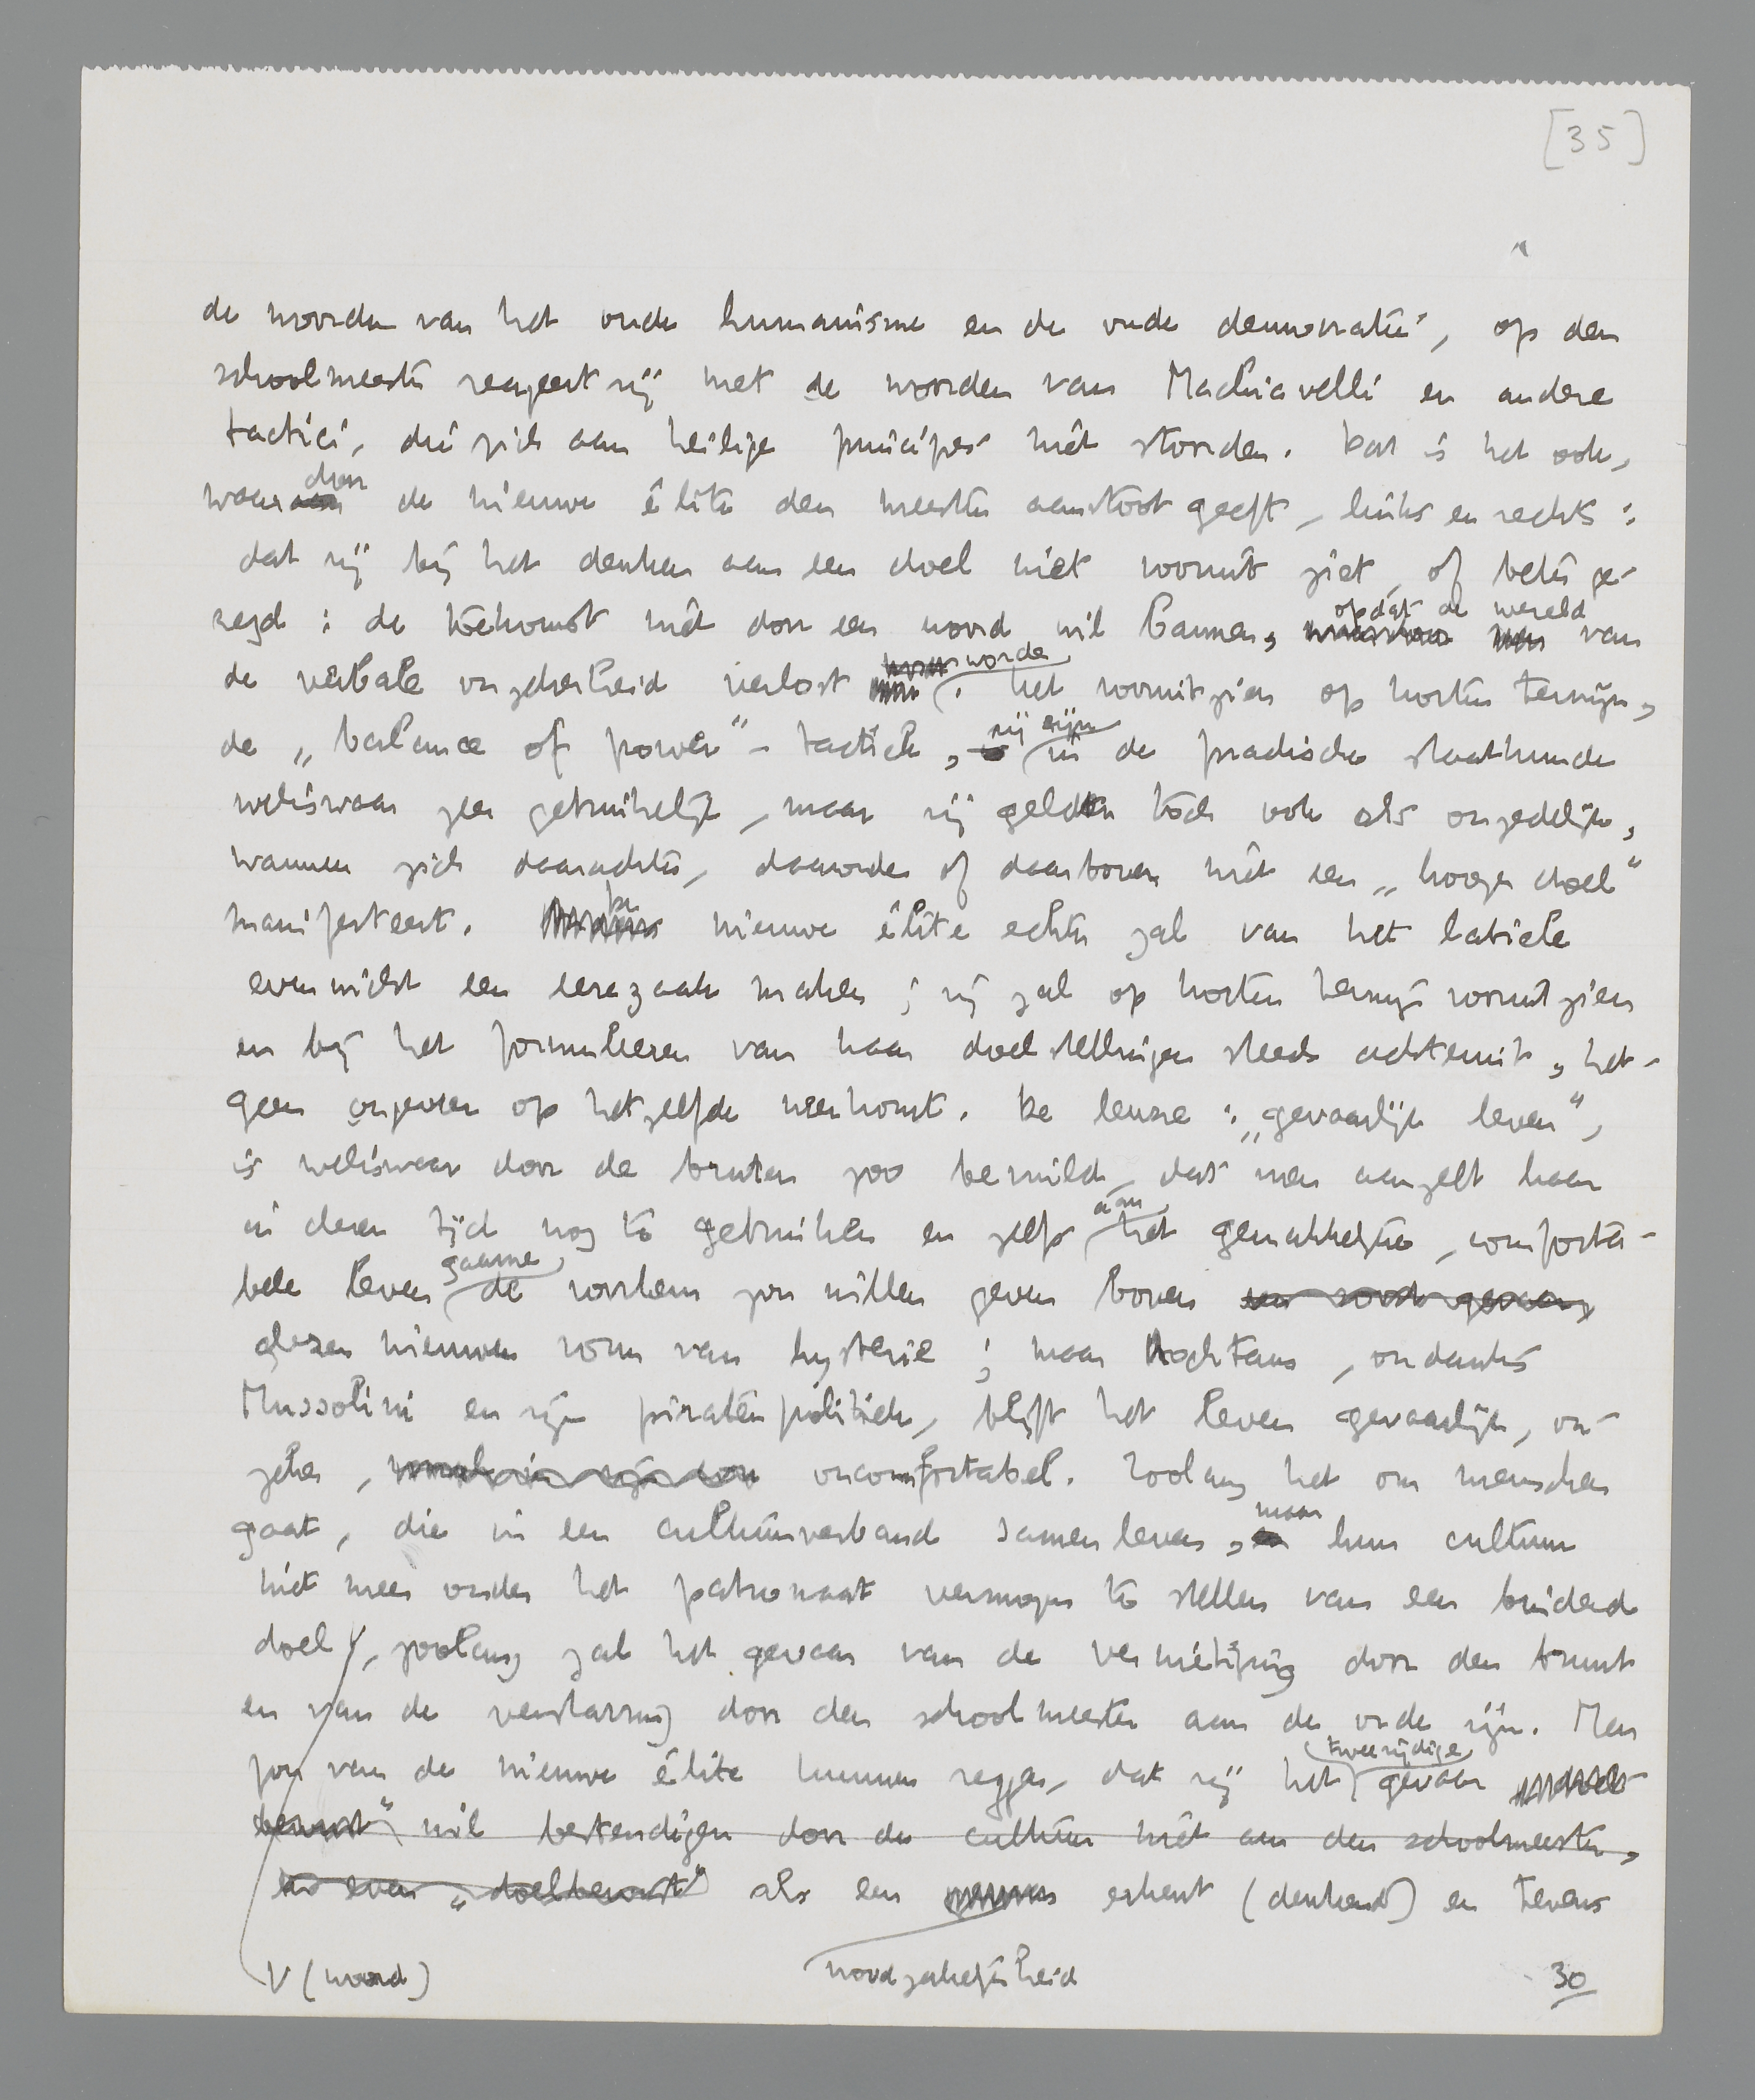 [35]
de woorden van het oude humanisme en de oude democratie, op den
schoolmeester reageert zij met de woorden van Machiavelli en andere
tactici, die zich aan heilige principes niet stoorden. Dat is het ook,
waardoor de nieuwe élite den meesten aanstoot geeft, links en rechts:
dat zij bij het denken aan een doel niet vooruit ziet, of beter ge-
zegd: de toekomst niet door een woord wil bannen, opdat de wereld van
de verbale onzekerheid verlost worde. Het vooruitzien op korten termijn,
de „balance of power"-tactiek, zij zijn in de practische staatkunde
weliswaar zeer gebruikelijk, maar zij gelden toch ook als onzedelijk,
wanneer zich daarachter, daaronder of daarboven niet een „hooger doel"
manifesteert. De nieuwe élite echter zal van het labiele
evenwicht een eerezaak maken; zij zal op korten termijn vooruitzien
en bij het formuleeren van haar doelstellingen steeds achteruit, het-
geen ongeveer op hetzelfde neerkomt. De leuze: „gevaarlijk leven",
is weliswaar door de bruten zoo bevuild, dat men aarzelt haar
in dezen tijd nog te gebruiken en zelfs aan het gemakkelijke, comforta-
bele leven gaarne de voorkeur zou willen geven boven
dezen nieuwen vorm van hysterie; maar nochtans, ondanks
Mussolini en zijn piratenpolitiek, blijft het leven gevaarlijk, on-
zeker, oncomfortabel. Zoolang het om menschen
gaat, die in een cultuurverband samenleven, maar hun cultuur
niet meer onder het patronaat vermogen te stellen van een bindend
doel, zoolang zal het gevaar van de vernietiging door den bruut
en van de verstarring door den schoolmeester aan de orde zijn. Men
zou van de nieuwe élite kunnen zeggen, dat zij het tweezijdige gevaar
bewust" wil bestendigen door de cultuur niet aan den schoolmeester,
en even „doelbewust" als een erkent (denkend) en tevens
V (woord) noodzakelijkheid 30